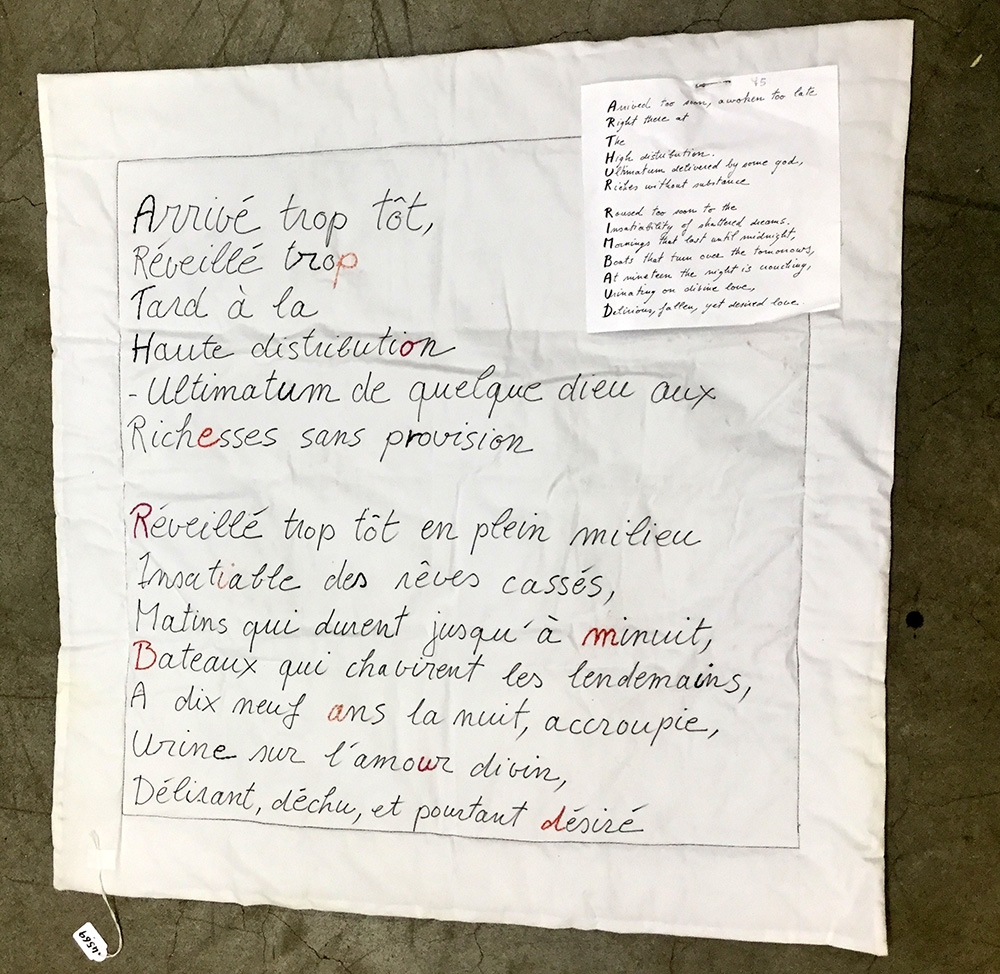 Arrivé trop tôt,
Réveillé trop
Tard à la
Haute distribution
-Ultimatum de quelque dieu aux
Richesses sans provision
Réveillé trop tôt en plein milieu
Insatiable des rêves cassés,
Matins qui durent jusqu'à minuit,
Bateaux qui chavirent les lendemains,
A dix neuf ans la nuit, accroupie,
Urine sur l'amour divin,
Délirant, déchu, et pourtant désiré
85
Arrived too soon, awoken too late
Right there at
The
High distribution.
Ultimatum delivered by some god,
Riches without substance
Roused too soon to the
Insatiability of shattered dreams.
Mornings that last until midnight,
Boats that turn over the tomorrows,
At nineteen the night is crouching,
Urinating on divine love,
Delirious, fallen, yet desired love.
.4569